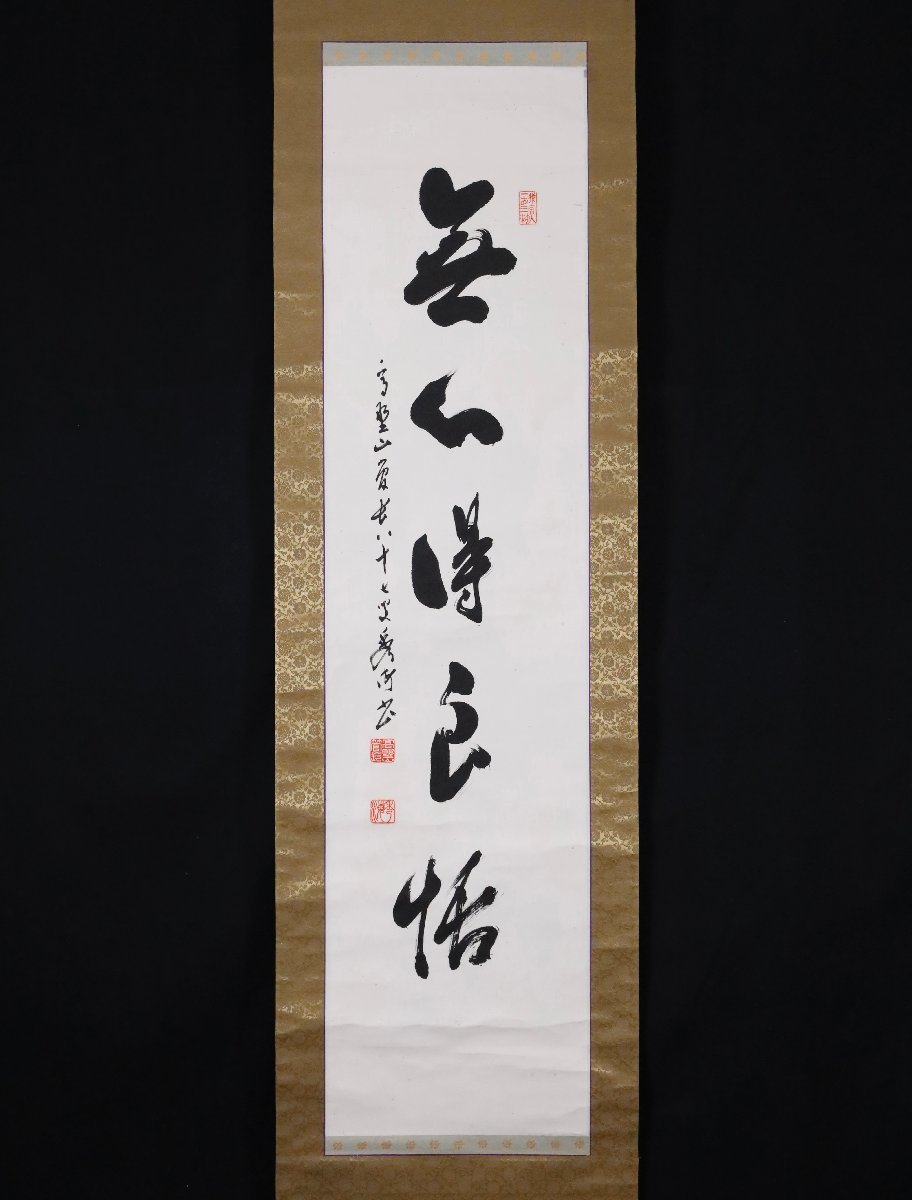 無心得良恬
高野山管長八十七叟秀海書